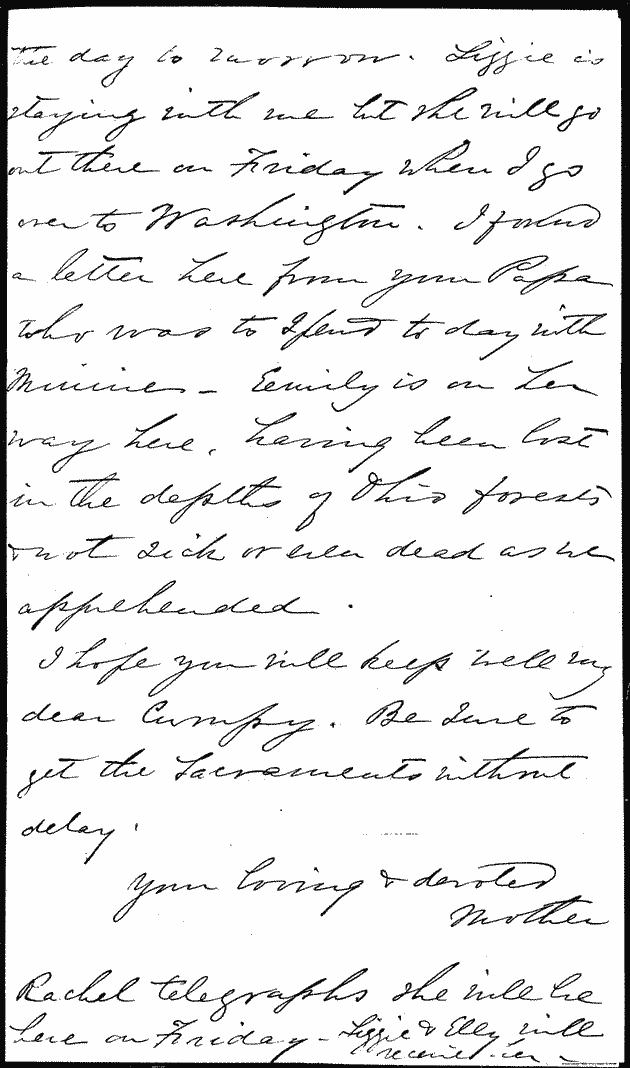 the day to morrow. Lizzie is
staying with me but she will go
out there on Friday when I go
over to Washington. I found
a letter here from your Papa
who was to spend to day with
Minnie – Emily is on her
way here, having been lost
in the depths of Ohio forests
& not sick or even dead as we
apprehended.
I hope you will keep well my
dear Cumpy. Be sure to
get the Sacraments without
delay.
Your loving & devoted
Mother
Rachel telegraphs she will be
here on Friday – Lizzie & Elly will
receive her –